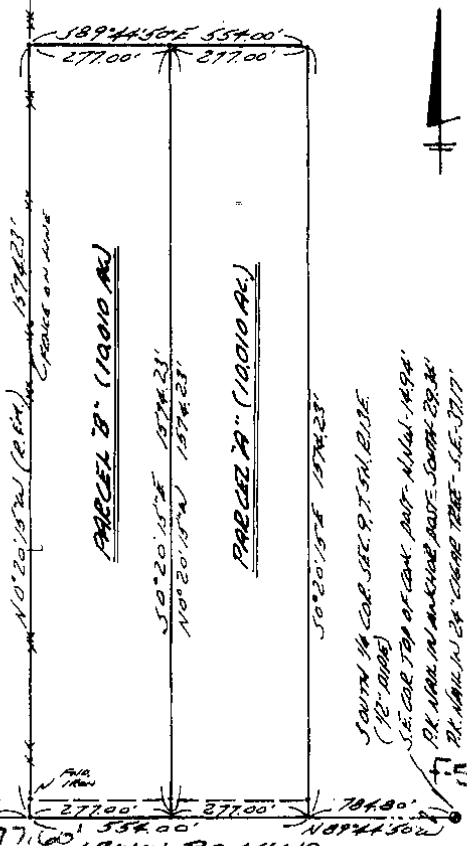 S89°44'50"E 554.00'
277.00' 277.00'
N0°20'15"W (REM.) 1574.23'
FENCE ON LINE
PARCEL "B" (10.010 AC.)
S0°20'15"E 1574.23'
N0°20'15"W 1574.23'
PARCEL "A" (10.010 AC.)
S0°20'15"E 1574.23'
SOUTH 1/4 COR. SEC. 9, T.5N, R.13E.
(1/2" PIPE)
S.E. COR. TOP OF CONC. POST - N.N.W. - 14.94'
P.K. NAIL IN ANCHOR POST - SOUTH 29.36'
P.K. NAIL IN 24" CEDAR TREE - S.E. - 37.17'
FND.
IRON
277.00' 277.00' 784.80'
97.60' 554.00' N89°44'50"W